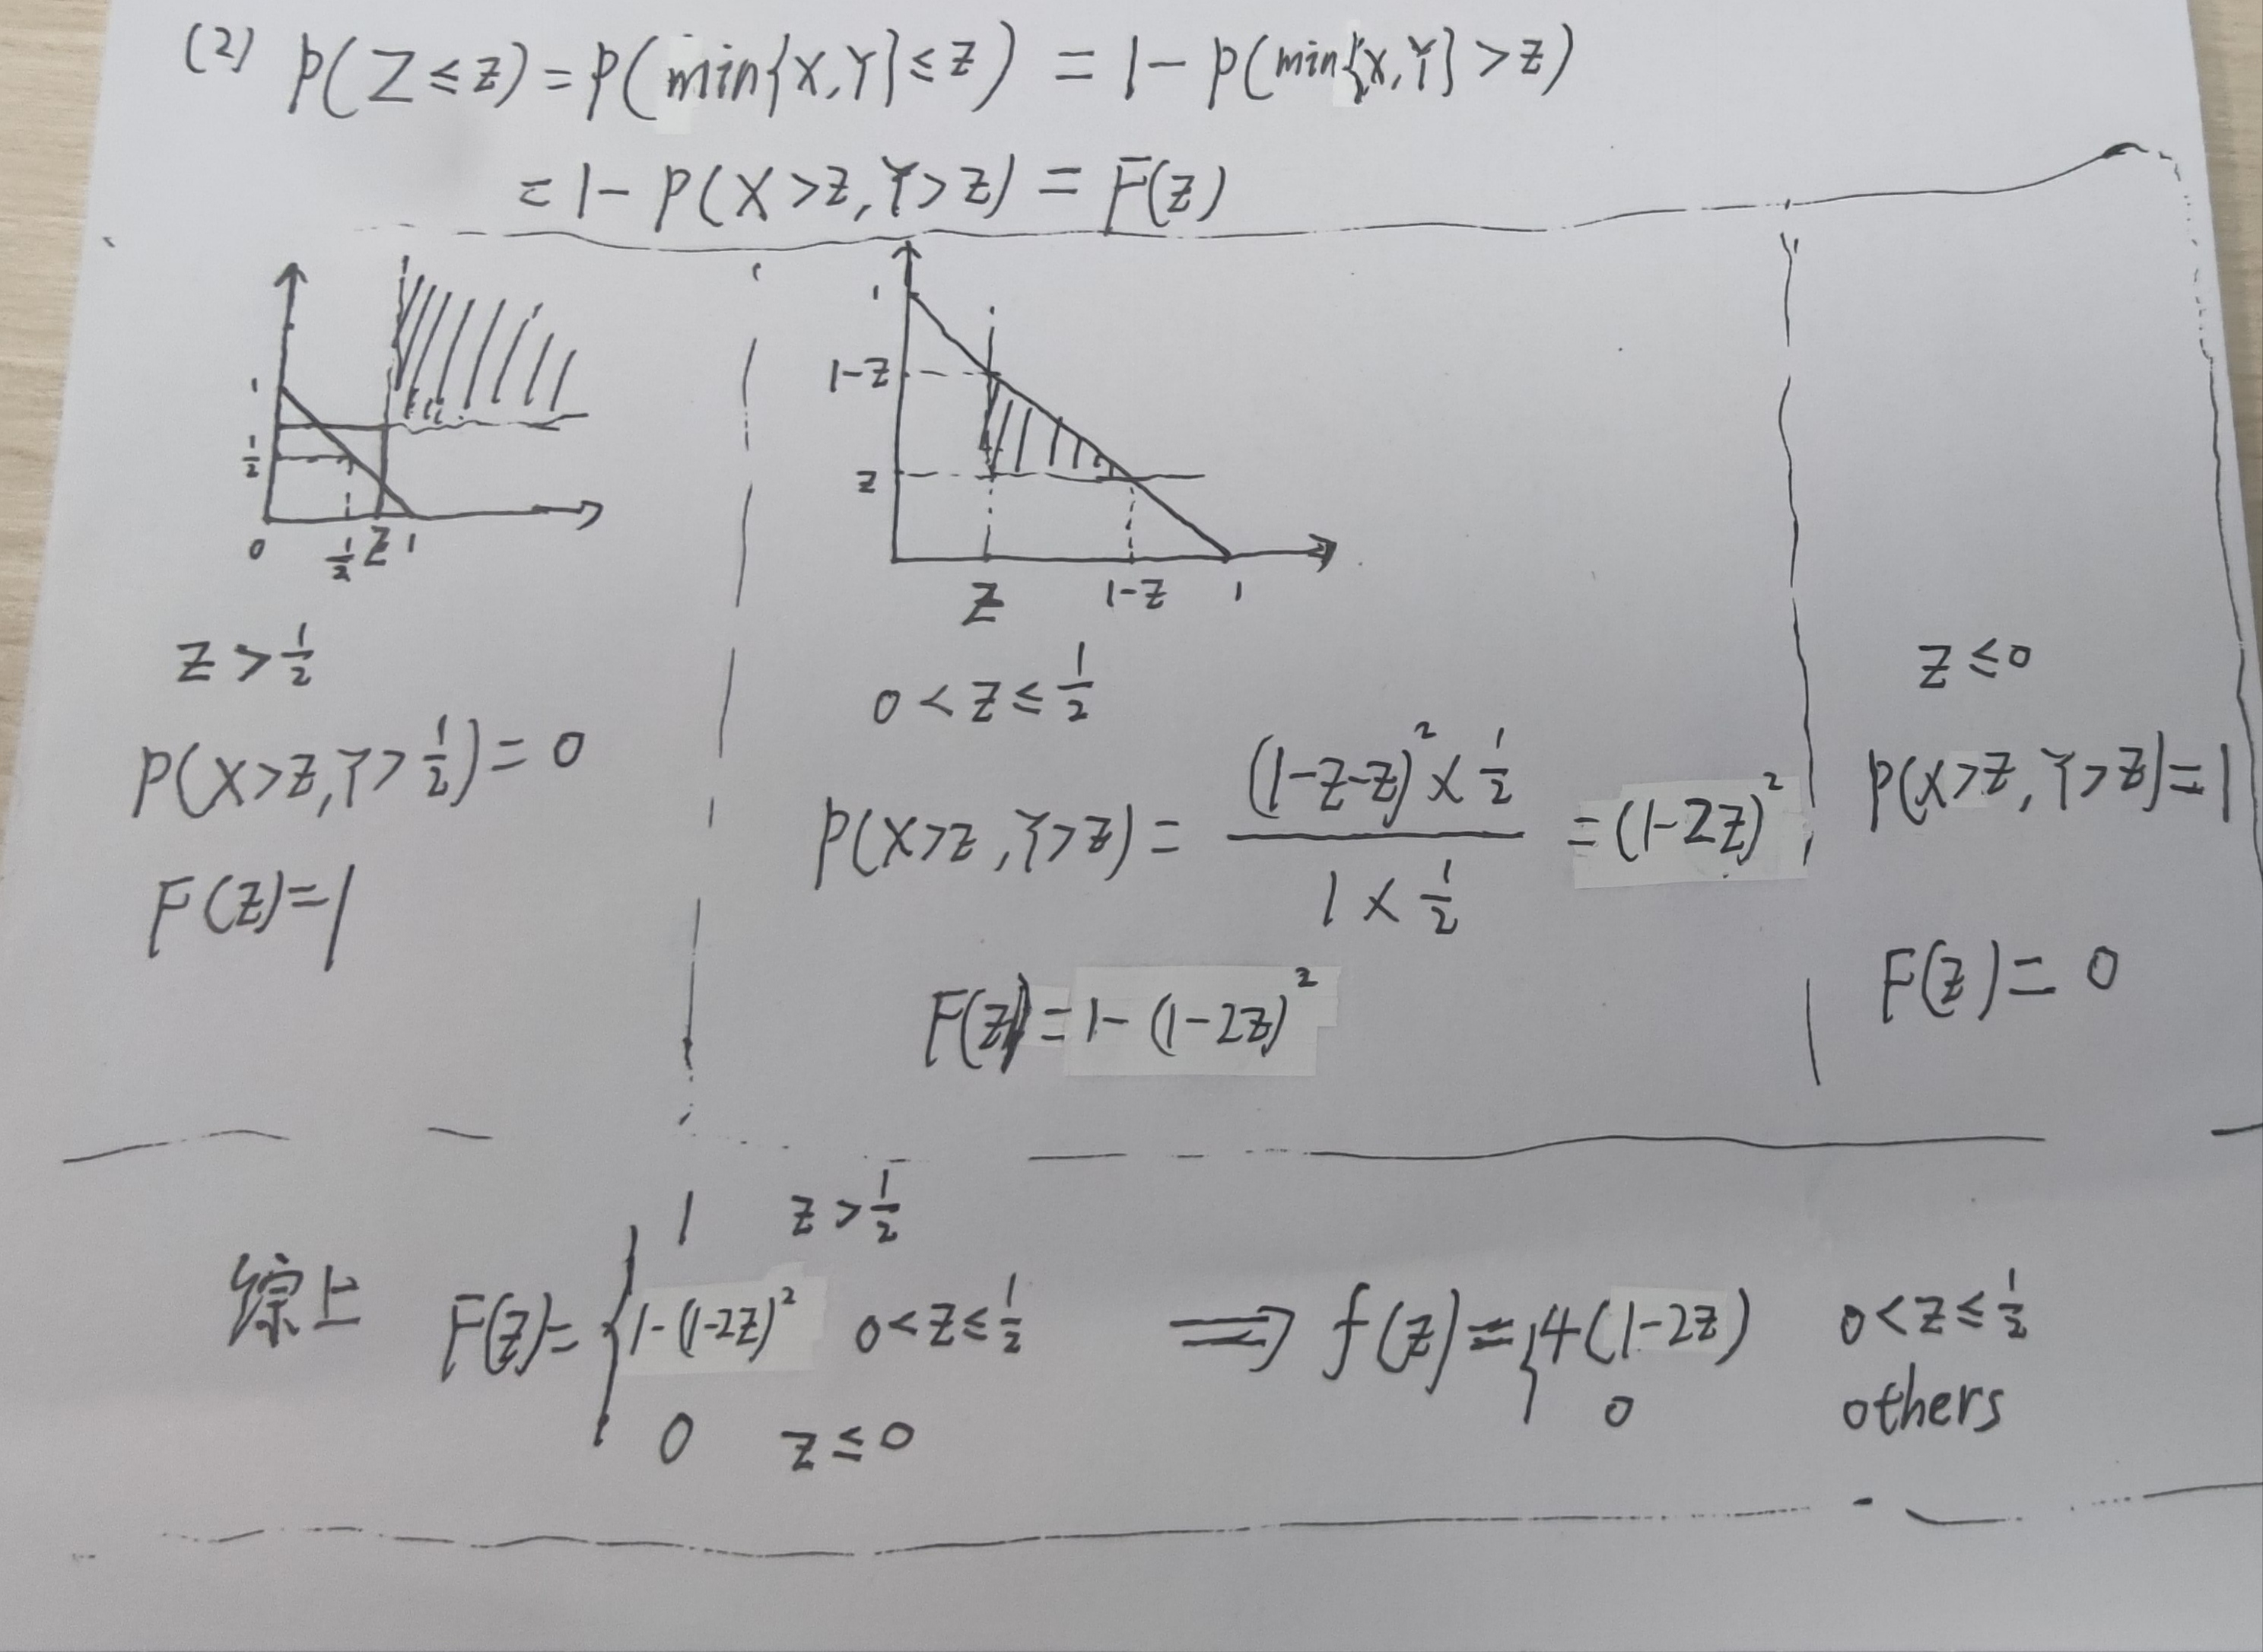 (2) P(Z≤z)=P(min{X,Y}≤z) = 1-P(min{X,Y}>z)
=1-P(X>z,Y>z) = F(z)
1
1/2
0 1/2 z 1
z>1/2
P(X>z,Y>1/2)=0
F(z)=1
1
1-z
z
z 1-z 1
0<z≤1/2
P(X>z,Y>z)= ((1-z-z)²×1/2)/(1×1/2) =(1-2z)²
F(z)=1-(1-2z)²
z≤0
P(X>z,Y>z)=1
F(z)=0
综上 F(z)={ 1 z>1/2
1-(1-2z)² 0<z≤1/2
0 z≤0
⟹ f(z)={ 4(1-2z) 0<z≤1/2
0 others